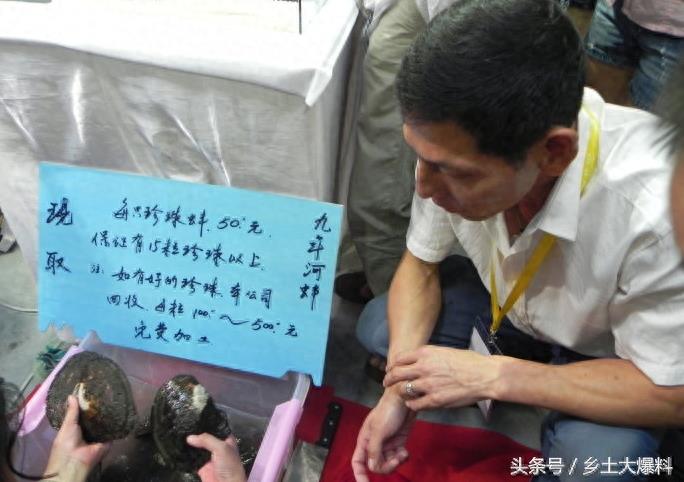 现取
每只珍珠蚌50.元.
保证有15粒珍珠以上.
注:如有好的珍珠.本公司
回收.每粒100.~500.元
免费加工
九年河蚌
头条号/乡土大爆料